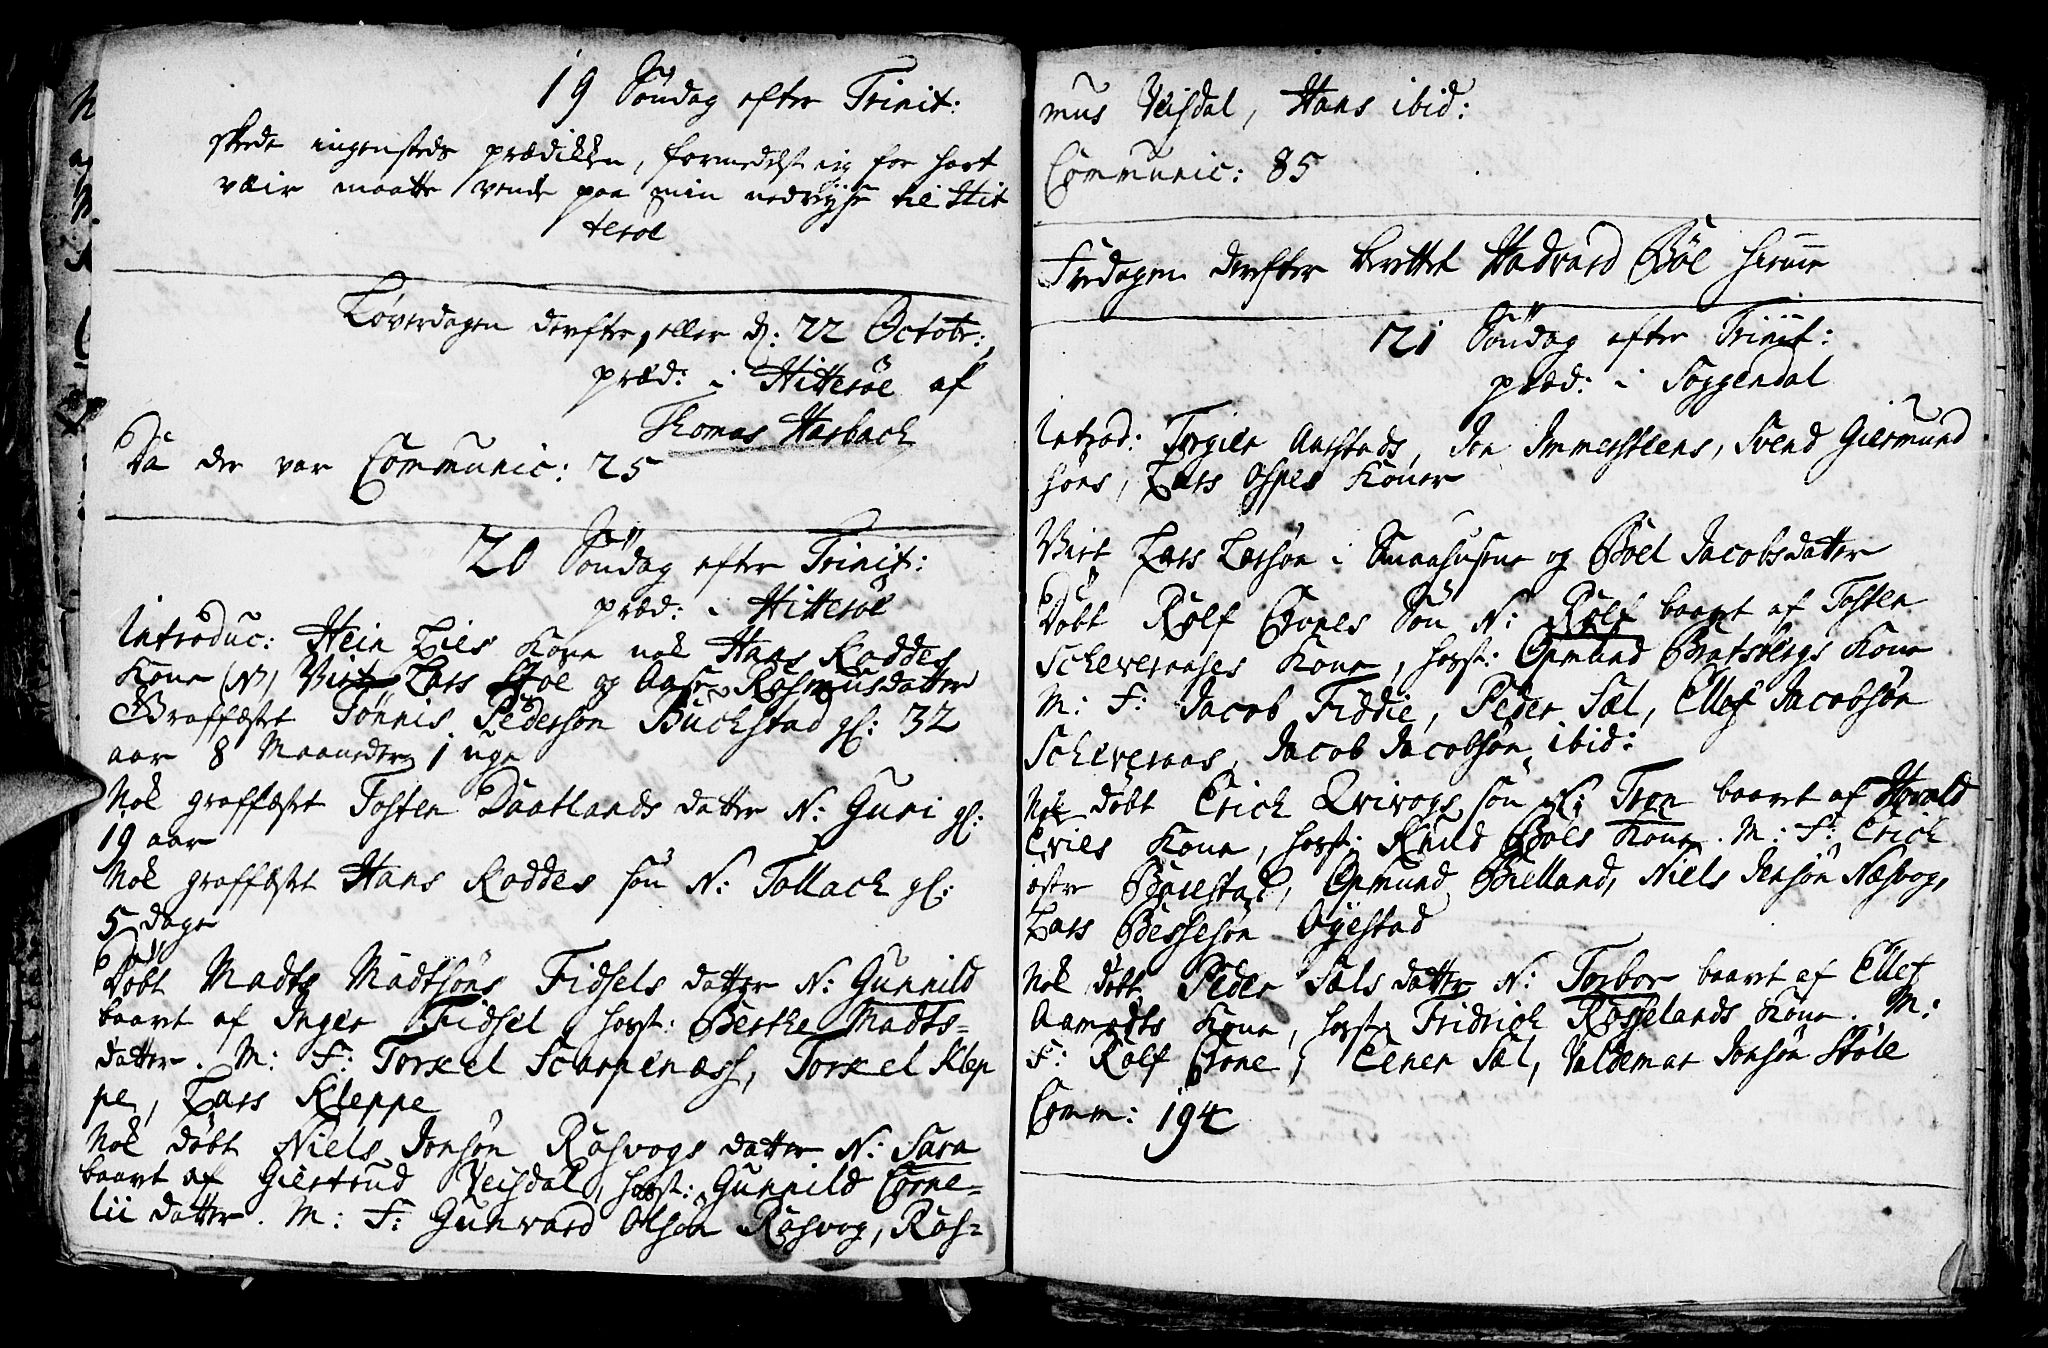 19 Søndag efter Trinit:
skede ingensteds prædikken, formedelst jeg for hart
væir maatte vende paa min nedrejse til Hit
terøe
Løverdagen derefter, eller d: 22 Octobr:
præd: i Hitterøe af
Thomas Harbach
Da der var Communic: 25
20 Søndag efter Trinit:
præd: i Hitterøe
Introduc: Hein Lies Kone nok Hans Roddes
Kone (N) Viet Lars Støe og Aase Rasmusdatter
Graffæstet Tønnis Pederson Buckstad gl: 32
aar 8 Maaneder 1 uge
Nok graffæstet Tosten Daatlands datter N: Guri gl:
19 aar
Nok graffæstet Hans Roddes søn N: Tollach gl:
5 dage
Døbt Madts Madtsøns Fidsels datter N: Gunnild
baaret af Inger Fidsel, horst: Berthe Madts-
datter. M: F: Torkel Scarpenæss, Torkel Klep
pe, Lars Kleppe
Nok døbt Niels Jonsøn Rasvogs datter N: Sara
baaret af Giertrud Veisdal, horst: Gunnild Corne-
lii datter. M: F: Gunvard Olsøn Rasvog, Ras-
mus Veisdal, Hans ibid:
Communic: 85
Fredagen derefter berettet Hadvard Bøe hiemme
21 Søndag efter Trinit:
præd: i Soggendal
Introd: Torgier Aarstads, Jon Immersteens, Svend Giermund
søns, Lars Ospes Koner
Viet Lars Larsøn i Smaahusene og Boel Jacobsdatter
Døbt Rolf Eones Søn N: Rolf baaret af Tosten
Scheveraases Kone, horst: Omund Bratsbergs Kone
M: F: Jacob Fidie, Peder Sæl, Ellef Jacobsøn
Scheveraas, Jacob Jacobsøn ibid:
Nok døbt Erich Qvivogs søn N: Tron baaret af Harald
Eries Kone, horst: Knud Bøes Kone. M: F: Erich
østre Barestad, Omund Bielland, Niels Jensøn Næsvog,
Lars Bessesøn Ayestad
Nok døbt Peder Sæls datter N: Torbor baaret af Ellef
Aamodts Kone, horst: Fridrich Rosselands Kone. M:
F: Rolf Eone, Eener Sæl, Valdemar Jonsøn Støle
Comm: 194